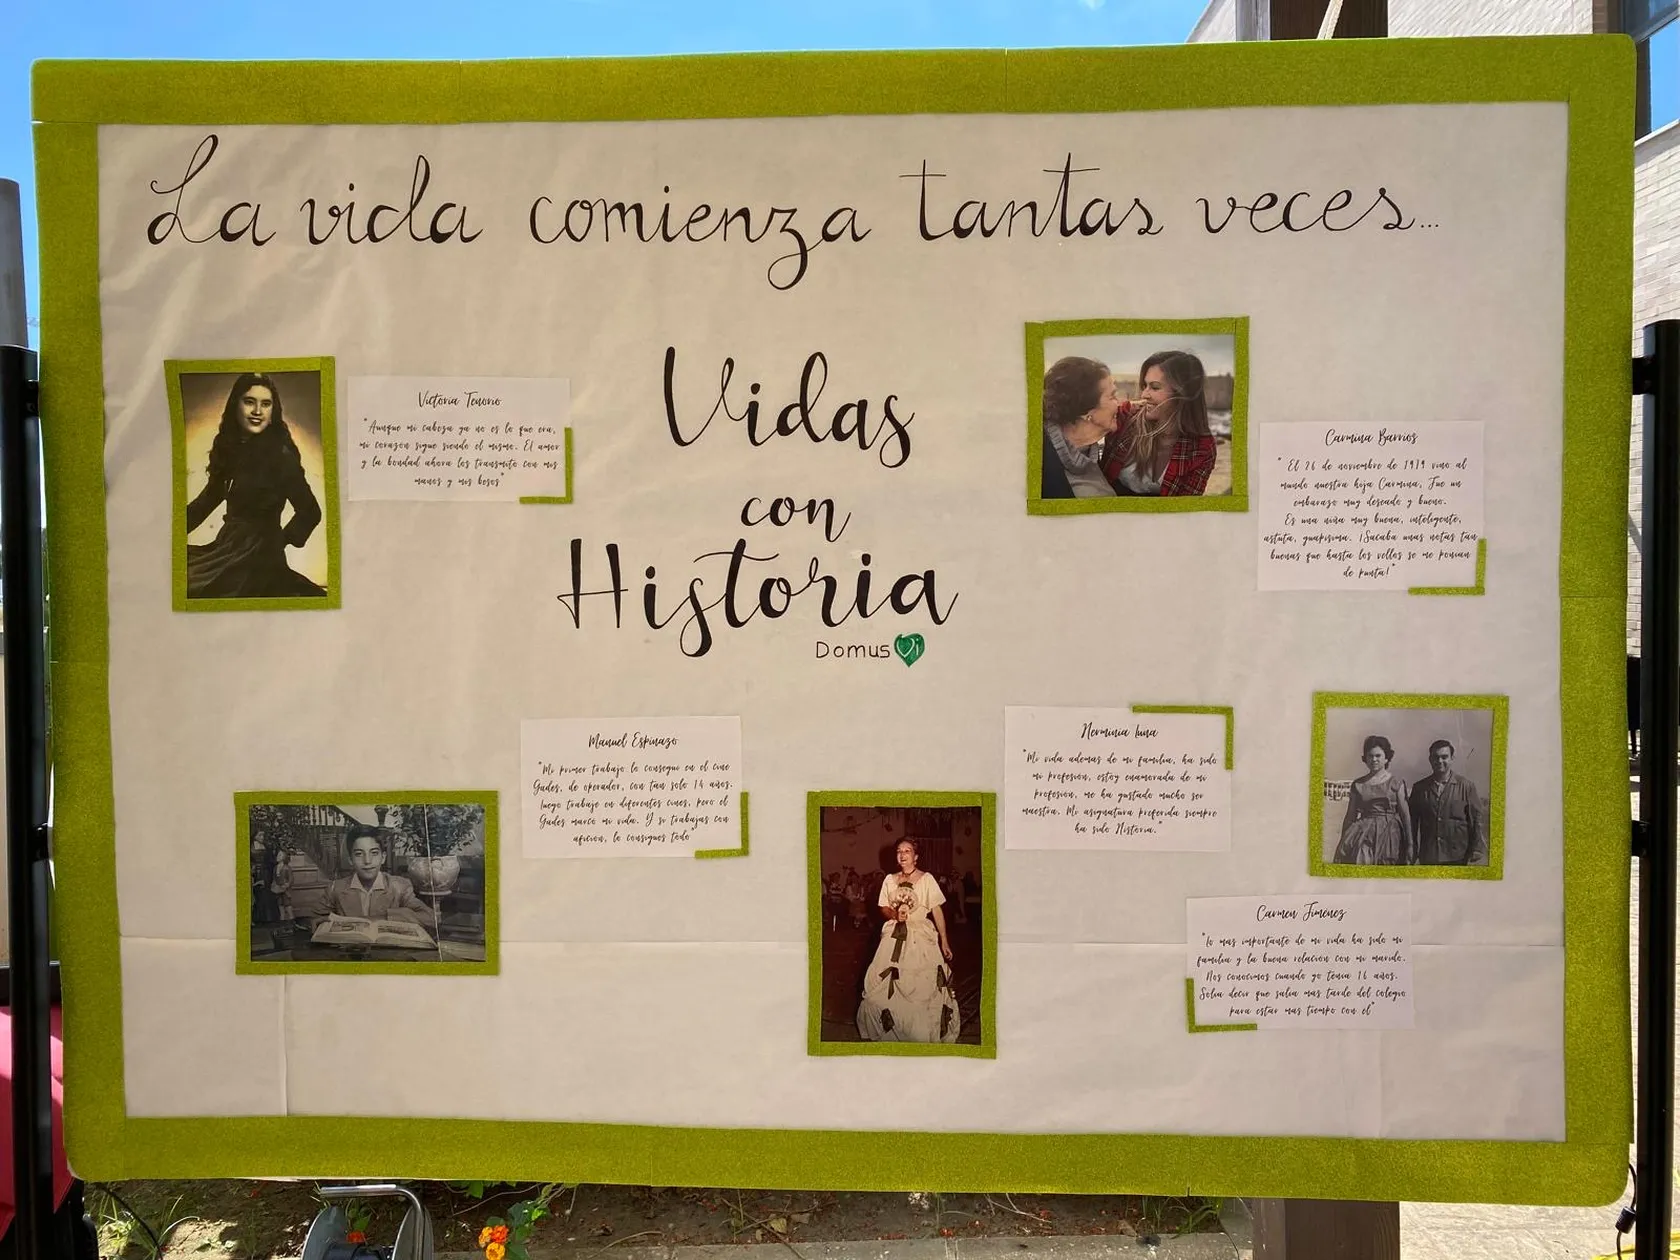 La vida comienza tantas veces...
Vidas
con
Historia
DomusVi
Victoria Tenorio
"Aunque mi cabeza ya no es lo que era,
mi corazon sigue siendo el mismo. El amor
y la bondad ahora los transmito con mis
manos y mis besos"
Carmina Barrios
" El 26 de noviembre de 1979 vino al
mundo nuestra hija Carmina, Fue un
embarazo muy deseado y bueno.
Es una niña muy buena, inteligente,
astuta, guapisima. ¡Sacaba unas notas tan
buenas que hasta los vellos se me ponian
de punta!"
Manuel Espinazo
"Mi primer trabajo lo consegui en el cine
Gades, de operador, con tan solo 14 años.
luego trabaje en diferentes cines, pero el
Gades marco mi vida. Y si trabajas con
aficion, lo consigues todo"
Herminia luna
"Mi vida ademas de mi familia, ha sido
mi profesion, estoy enamorada de mi
profesion, me ha gustado mucho ser
maestra. Mi asignatura preferida siempre
ha sido Historia."
Carmen Jimenez
"lo mas importante de mi vida ha sido mi
familia y la buena relacion con mi marido.
Nos conocimos cuando yo tenia 16 años.
Solia decir que salia mas tarde del colegio
para estar mas tiempo con el"